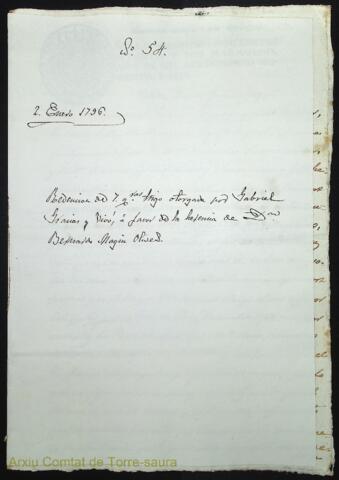 Nº 54.
2. Enero 1796.
Redencion de 7 qras trigo otorgada por Gabriel
Gracias y Vivó, á favor de la herencia de Don
Bernardo Magin Olives.
Arxiu Comtat de Torre-saura